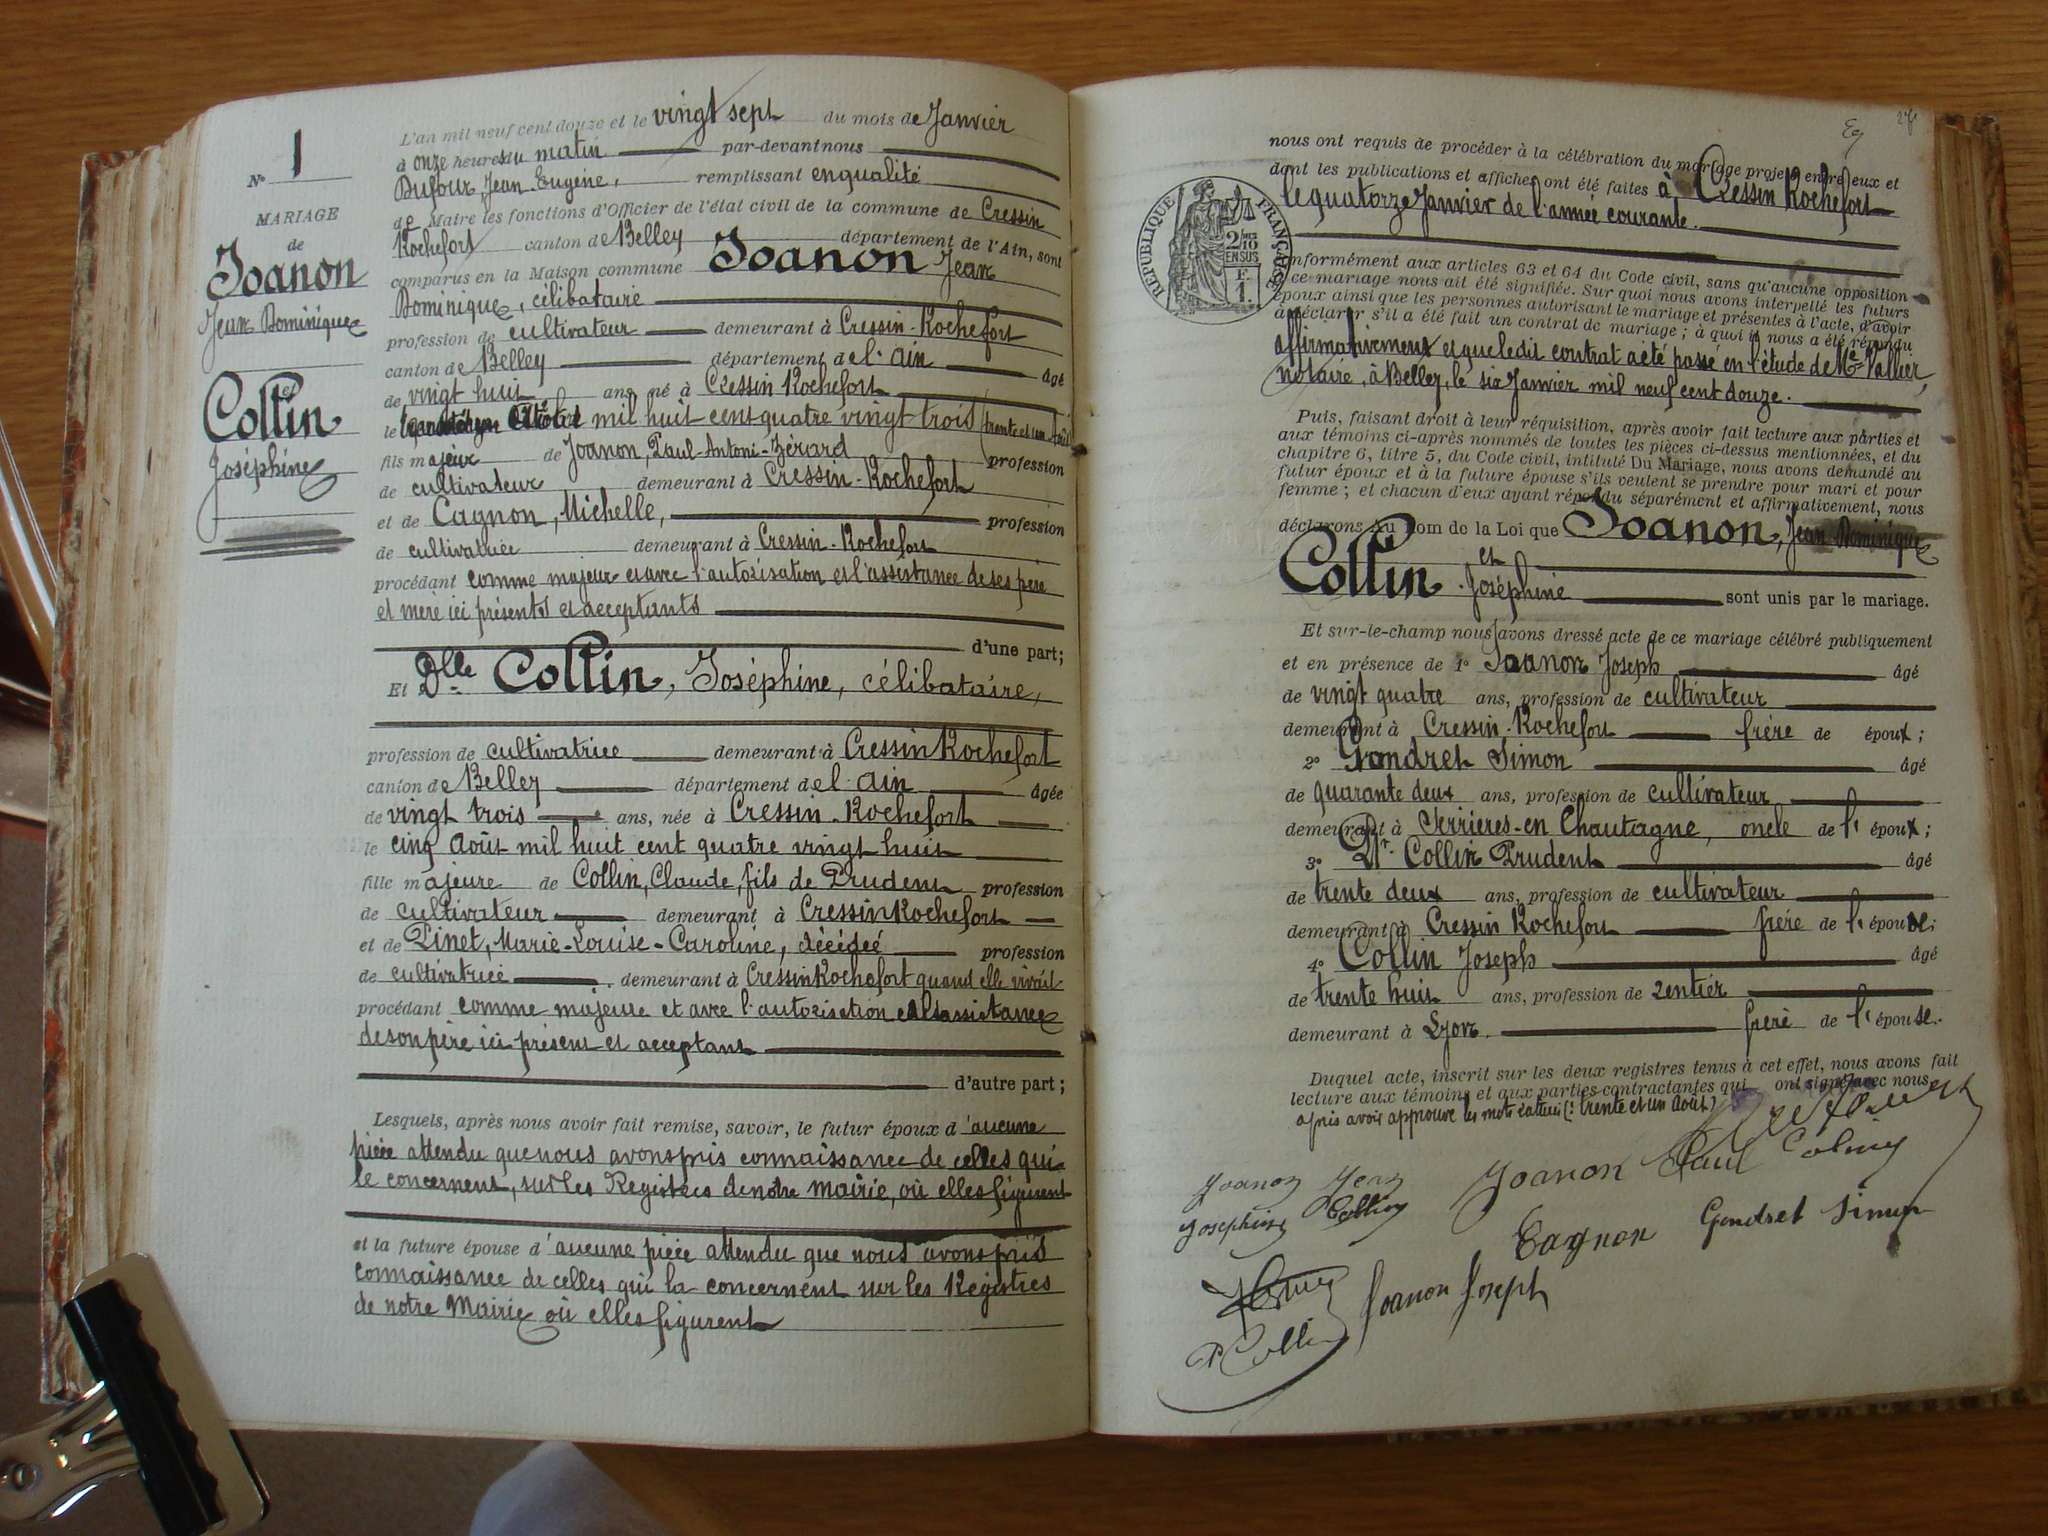 N° 1
MARIAGE
de
Joanon
Jean Dominique
et
Collin
Joséphine
L'an mil neuf cent douze et le vingt sept du mois de Janvier
à onze heures du matin par-devant nous
Dufour, Jean-Eugène, remplissant en qualité
de Maire les fonctions d'Officier de l'état civil de la commune de Cressin
Rochefort canton de Belley département de l'Ain, sont
comparus en la Maison commune Joanon Jean
Dominique, célibataire
profession de cultivateur demeurant à Cressin-Rochefort
canton de Belley département de l'Ain âgé
de vingt huit ans, né à Cressin Rochefort
le mil huit cent quatre vingt trois (trente et un Août)
fils majeur de Joanon, Paul-Antoni-Zérard profession
de cultivateur demeurant à Cressin-Rochefort
et de Cagnon, Michelle, profession
de cultivatrice demeurant à Cressin-Rochefort
procédant comme majeur et avec l'autorisation et l'assistance de ses père
et mère ici présents et acceptants
d'une part;
Et Dlle Collin, Joséphine, célibataire,
profession de cultivatrice demeurant à Cressin Rochefort
canton de Belley département de l'Ain âgée
de vingt trois ans, née à Cressin-Rochefort
le cinq Août mil huit cent quatre vingt huit
fille majeure de Collin, Claude, fils de Prudent profession
de cultivateur demeurant à Cressin Rochefort
et de Pinet, Marie-Louise-Caroline, décédée profession
de cultivatrice demeurant à Cressin Rochefort quand elle vivait
procédant comme majeure et avec l'autorisation et l'assistance
de son père ici présent et acceptant
d'autre part;
Lesquels, après nous avoir fait remise, savoir, le futur époux d'aucune
pièce attendu que nous avons pris connaissance de celles qui
le concernent, sur les Registres de notre mairie, où elles figurent
et la future épouse d'aucune pièce attendu que nous avons pris
connaissance de celles qui la concernent sur les Registres
de notre Mairie où elles figurent
27
nous ont requis de procéder à la célébration du mariage projeté entre eux et
dont les publications et affiches ont été faites à Cressin Rochefort
le quatorze Janvier de l'année courante.
RÉPUBLIQUE FRANÇAISE
2/10
EN SUS
F.
1.
conformément aux articles 63 et 64 du Code civil, sans qu'aucune opposition
à ce mariage nous ait été signifiée. Sur quoi nous avons interpellé les futurs
époux ainsi que les personnes autorisant le mariage et présentes à l'acte, d'avoir
à déclarer s'il a été fait un contrat de mariage; à quoi il nous a été répondu
affirmativement et que ledit contrat a été passé en l'étude de Me Vallier,
notaire, à Belley, le six Janvier mil neuf cent douze.
Puis, faisant droit à leur réquisition, après avoir fait lecture aux parties et
aux témoins ci-après nommés de toutes les pièces ci-dessus mentionnées, et du
chapitre 6, titre 5, du Code civil, intitulé Du Mariage, nous avons demandé au
futur époux et à la future épouse s'ils veulent se prendre pour mari et pour
femme; et chacun d'eux ayant répondu séparément et affirmativement, nous
déclarons au nom de la Loi que Joanon, Jean Dominique
et
Collin Joséphine sont unis par le mariage.
Et sur-le-champ nous avons dressé acte de ce mariage célébré publiquement
et en présence de 1° Joanon Joseph âgé
de vingt quatre ans, profession de cultivateur
demeurant à Cressin-Rochefort frère de époux;
2° Gondret Simon âgé
de quarante deux ans, profession de cultivateur
demeurant à Serrières-en Chautagne, oncle de l'époux;
3° Collin Prudent âgé
de trente deux ans, profession de cultivateur
demeurant à Cressin Rochefort frère de l'épouse;
4° Collin Joseph âgé
de trente huit ans, profession de rentier
demeurant à Lyon. frère de l'épouse.
Duquel acte, inscrit sur les deux registres tenus à cet effet, nous avons fait
lecture aux témoins et aux parties contractantes qui ont signé avec nous
après avoir approuvé les mots (trente et un Août)
Joanon Jean Joanon Paul Colliny
Joséphine Collin
Cagnon Gondret Simon
Joanon Joseph
P Collin